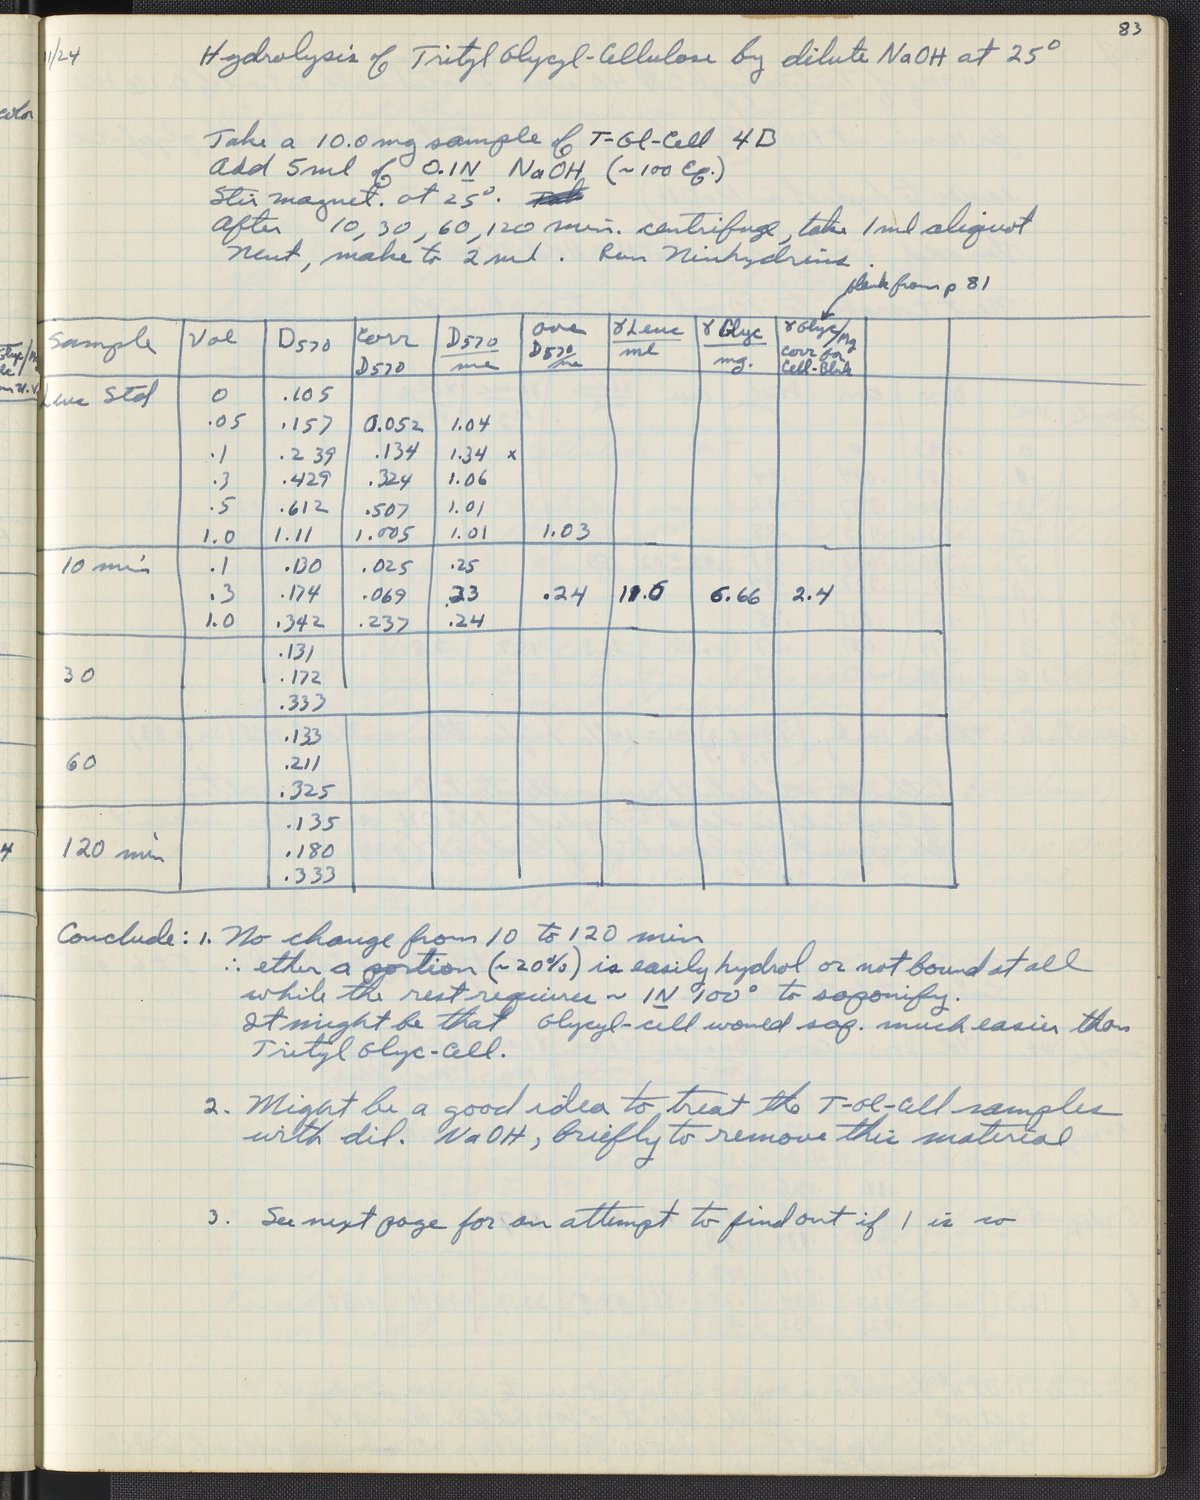 83
11/24 Hydrolysis of Trityl Glycyl-Cellulose by dilute NaOH at 25°
Take a 10.0 mg sample of T-Gl-Cell 4B
Add 5 ml of 0.1N NaOH (~100 Eq.)
Stir magnet. at 25°.
After 10, 30, 60, 120 min. centrifuge, take 1 ml aliquot
Neut, make to 2 ml. Run Ninhydrins.
blank from p 81
color
Sample Vol D570 Corr D570 D570/ml ave D570/ml γ Leuc/ml γ Glyc/mg. γ Glyc/Mg corr for Cell-Blnk
Leuc Std 0 .105
.05 .157 0.052 1.04
.1 .239 .134 1.34 x
.3 .429 .324 1.06
.5 .612 .507 1.01
1.0 1.11 1.005 1.01 1.03
10 min .1 .130 .025 .25
.3 .174 .069 .23 .24 11.6 6.66 2.4
1.0 .342 .237 .24
.131
30 .172
.333
.133
60 .211
.325
.135
120 min .180
.333
4
Conclude: 1. No change from 10 to 120 min
∴ ether a portion (~20%) is easily hydrol or not bound at all
while the rest requires ~ 1N 100° to saponify.
It might be that Glycyl-cell would sap. much easier than
Trityl Glyc-Cell.
2. Might be a good idea to treat the T-Gl-Cell samples
with dil. NaOH, briefly to remove this material
3. See next page for an attempt to find out if 1 is so